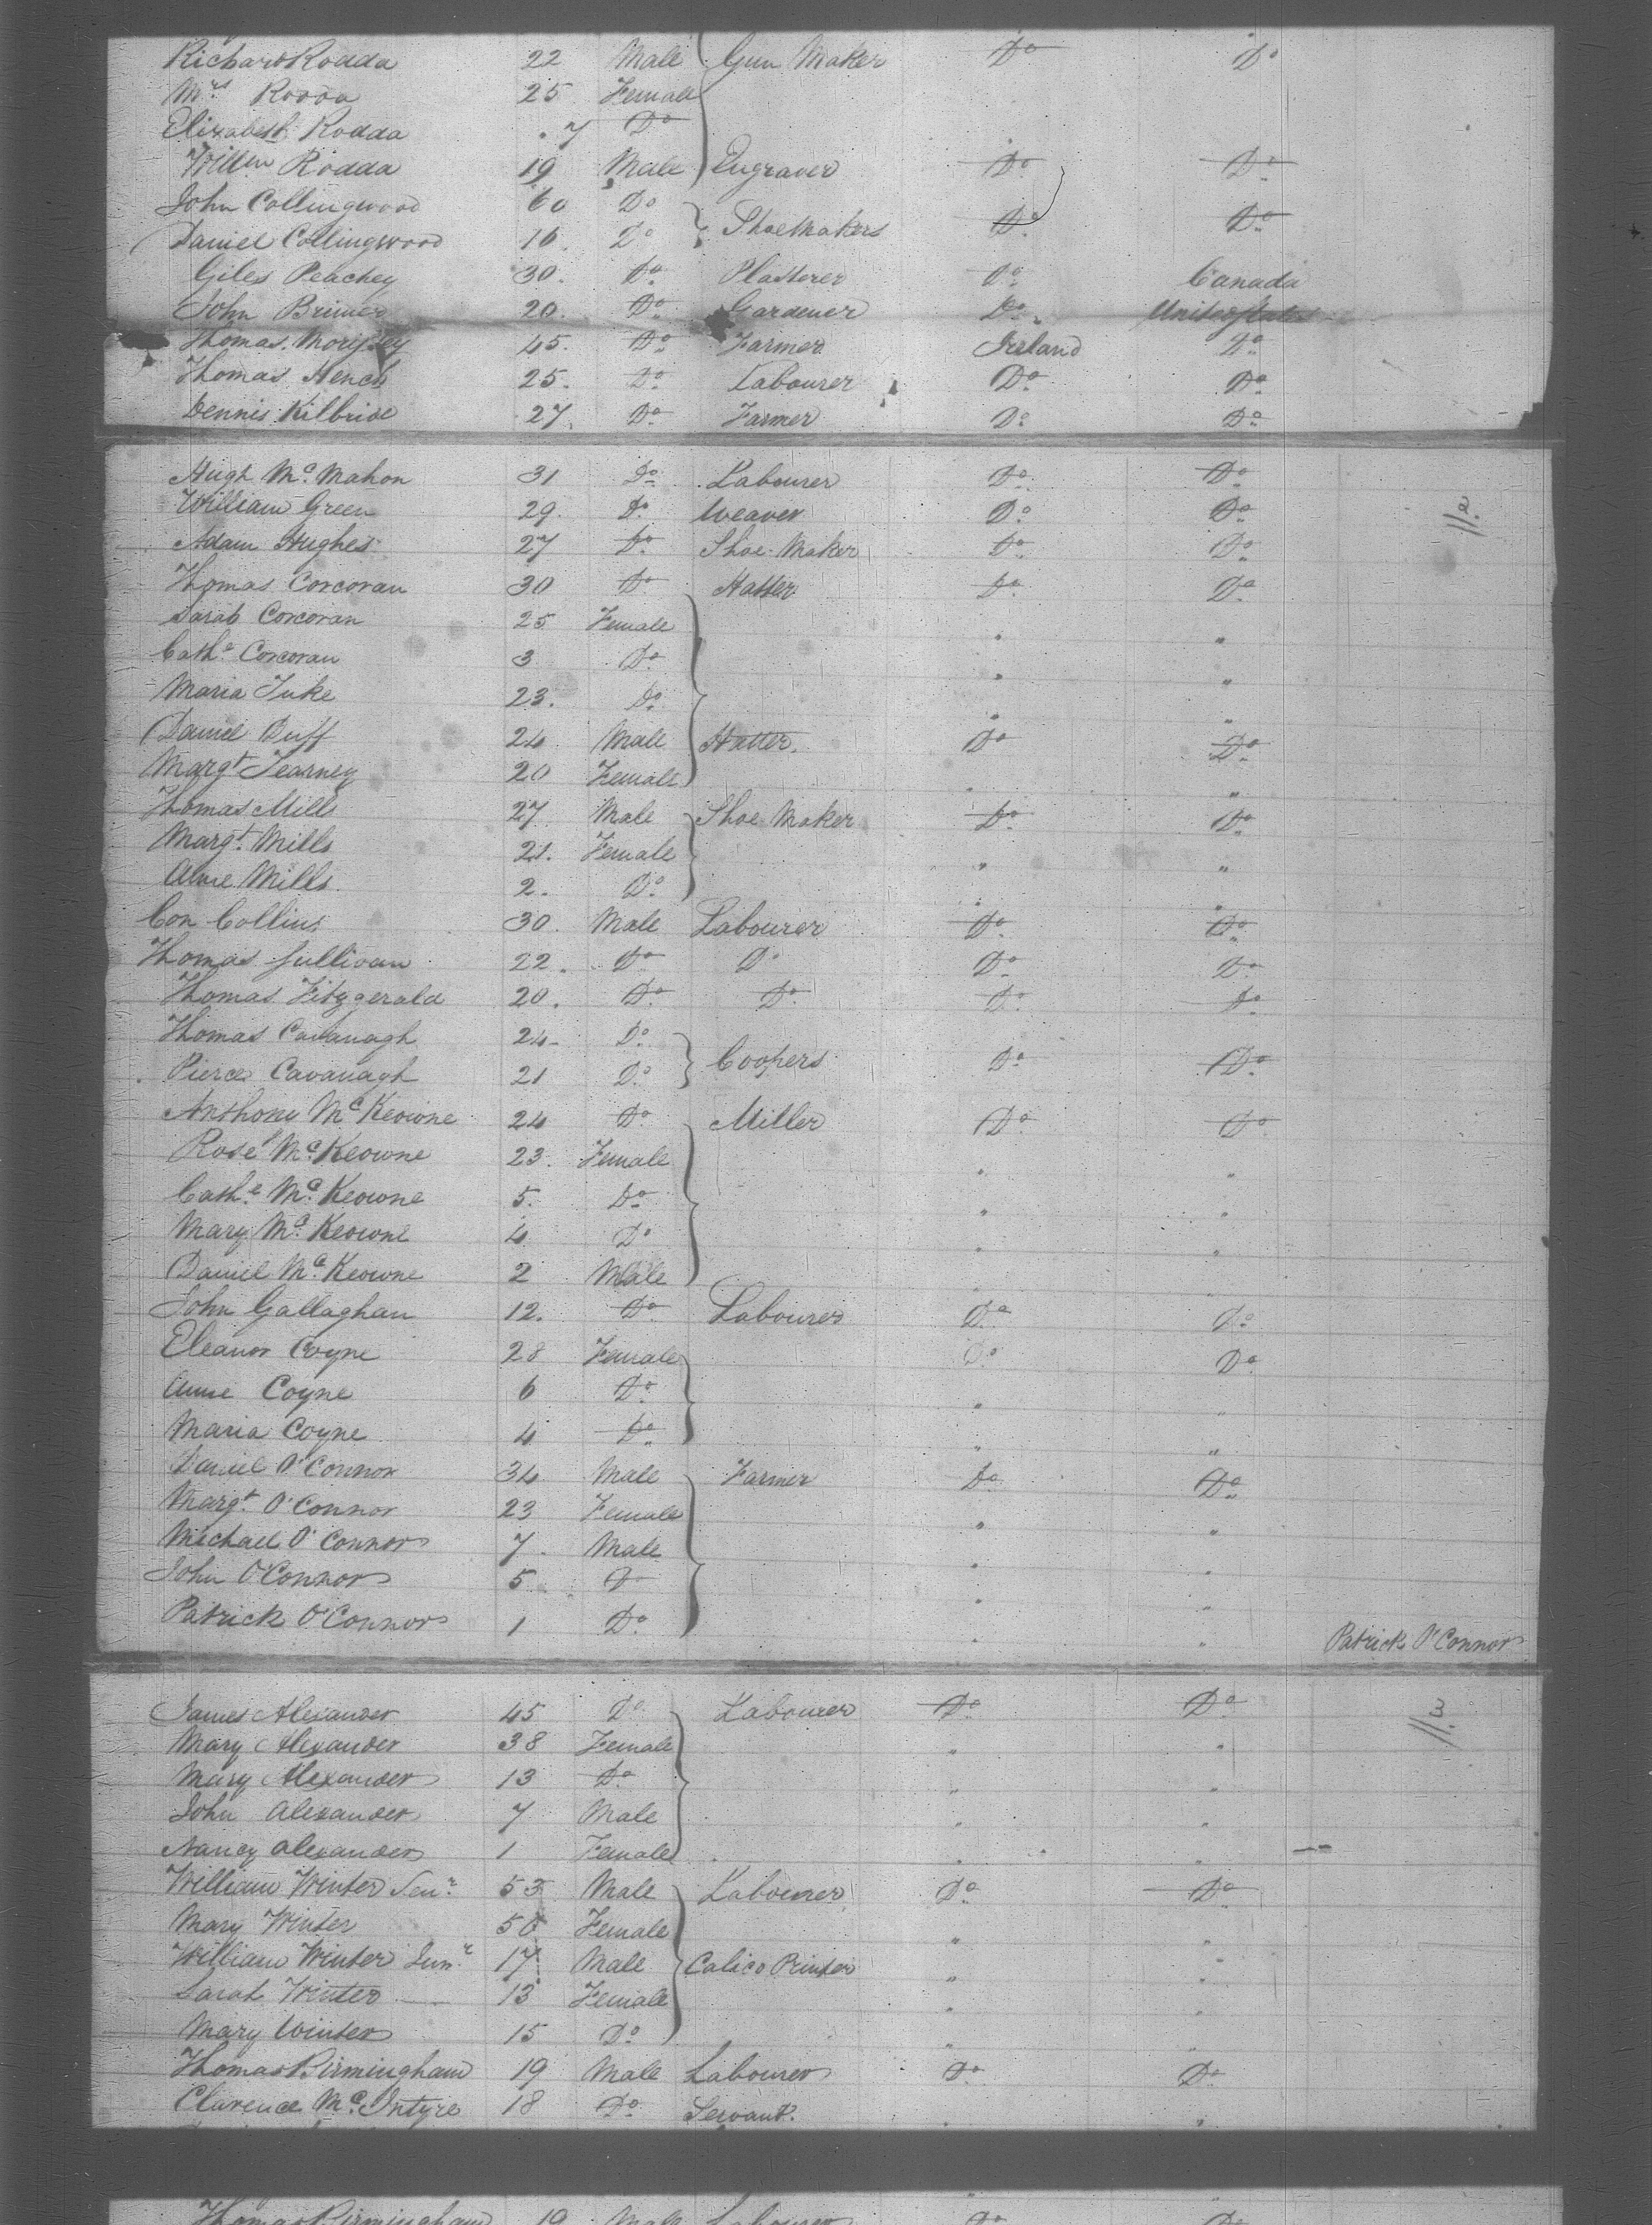 Richard Rodda 22 Male Gun Maker Do Do
Mrs Rodda 25 Female
Elizabeth Rodda .7 Do
Willm Rodda 19 Male Engraver Do Do
John Collingwood 60 Do
Shoemakers Do Do
Daniel Collingwood 16 Do
Giles Peachey 30. Do Plasterer Do Canada
John 20. Do Gardener Do United States
Thomas Morissey 45. Do Farmer Ireland Do
Thomas Hench 25. Do Labourer Do Do
Dennis Kilbride 27. Do Farmer Do Do
Hugh Mc Mahon 31 Do Labourer Do Do
William Green 29. Do Weaver Do Do //2.
Adam Hughes 27 Do Shoe Maker Do Do
Thomas Corcoran 30 Do Hatter Do Do
Sarah Corcoran 25 Female " "
Cathe Corcoran 3 Do " "
Maria Tuke 23. Do " "
Daniel 24 Male Hatter. Do Do
Margt Tearney 20 Female " "
Thomas Mills 27 Male Shoe Maker Do Do
Margt. Mills 21. Female " "
Anne Mills 2. Do " "
Con Collins 30. Male Labourer Do Do
Thomas Sullivan 22. Do Do Do Do
Thomas Fitzgerald 20. Do Do Do Do
Thomas Cavanagh 24 Do
Coopers Do Do
Pierce Cavanagh 21 Do
Anthony McKeowne 24 Do Miller Do Do
Rose McKeowne 23. Female " "
Cathe McKeowne 5. Do " "
Mary McKeowne 4 Do " "
Daniel McKeowne 2 Male " "
John Gallaghan 12. Do Labourer Do Do
Eleanor Coyne 28 Female Do Do
Anne Coyne 6 Do " "
Maria Coyne 4 Do " "
Daniel O'Connor 34 Male Farmer Do Do
Margt O'Connor 23 Female " "
Michael O'Connor 7 Male " "
John O'Connor 5 Do " "
Patrick O'Connor 1 Do " " Patrick O'Connor
James Alexander 45 Do Labourer Do Do //3.
Mary Alexander 38 Female " "
Mary Alexander 13 Do " "
John Alexander 7 Male " "
Nancy Alexander 1 Female " "
William Winter Senr. 53 Male Labourer Do Do
Mary Winter 50 Female " "
William Winter Junr 17 Male Calico Printer " "
Sarah Winter 13 Female " "
Mary Winter 15 Do " "
Thomas Birmingham 19 Male Labourer Do Do
Clarence Mc.Intyre 18 Do Servant. " "
Thomas Birmingham 19 Male Labourer Do Do